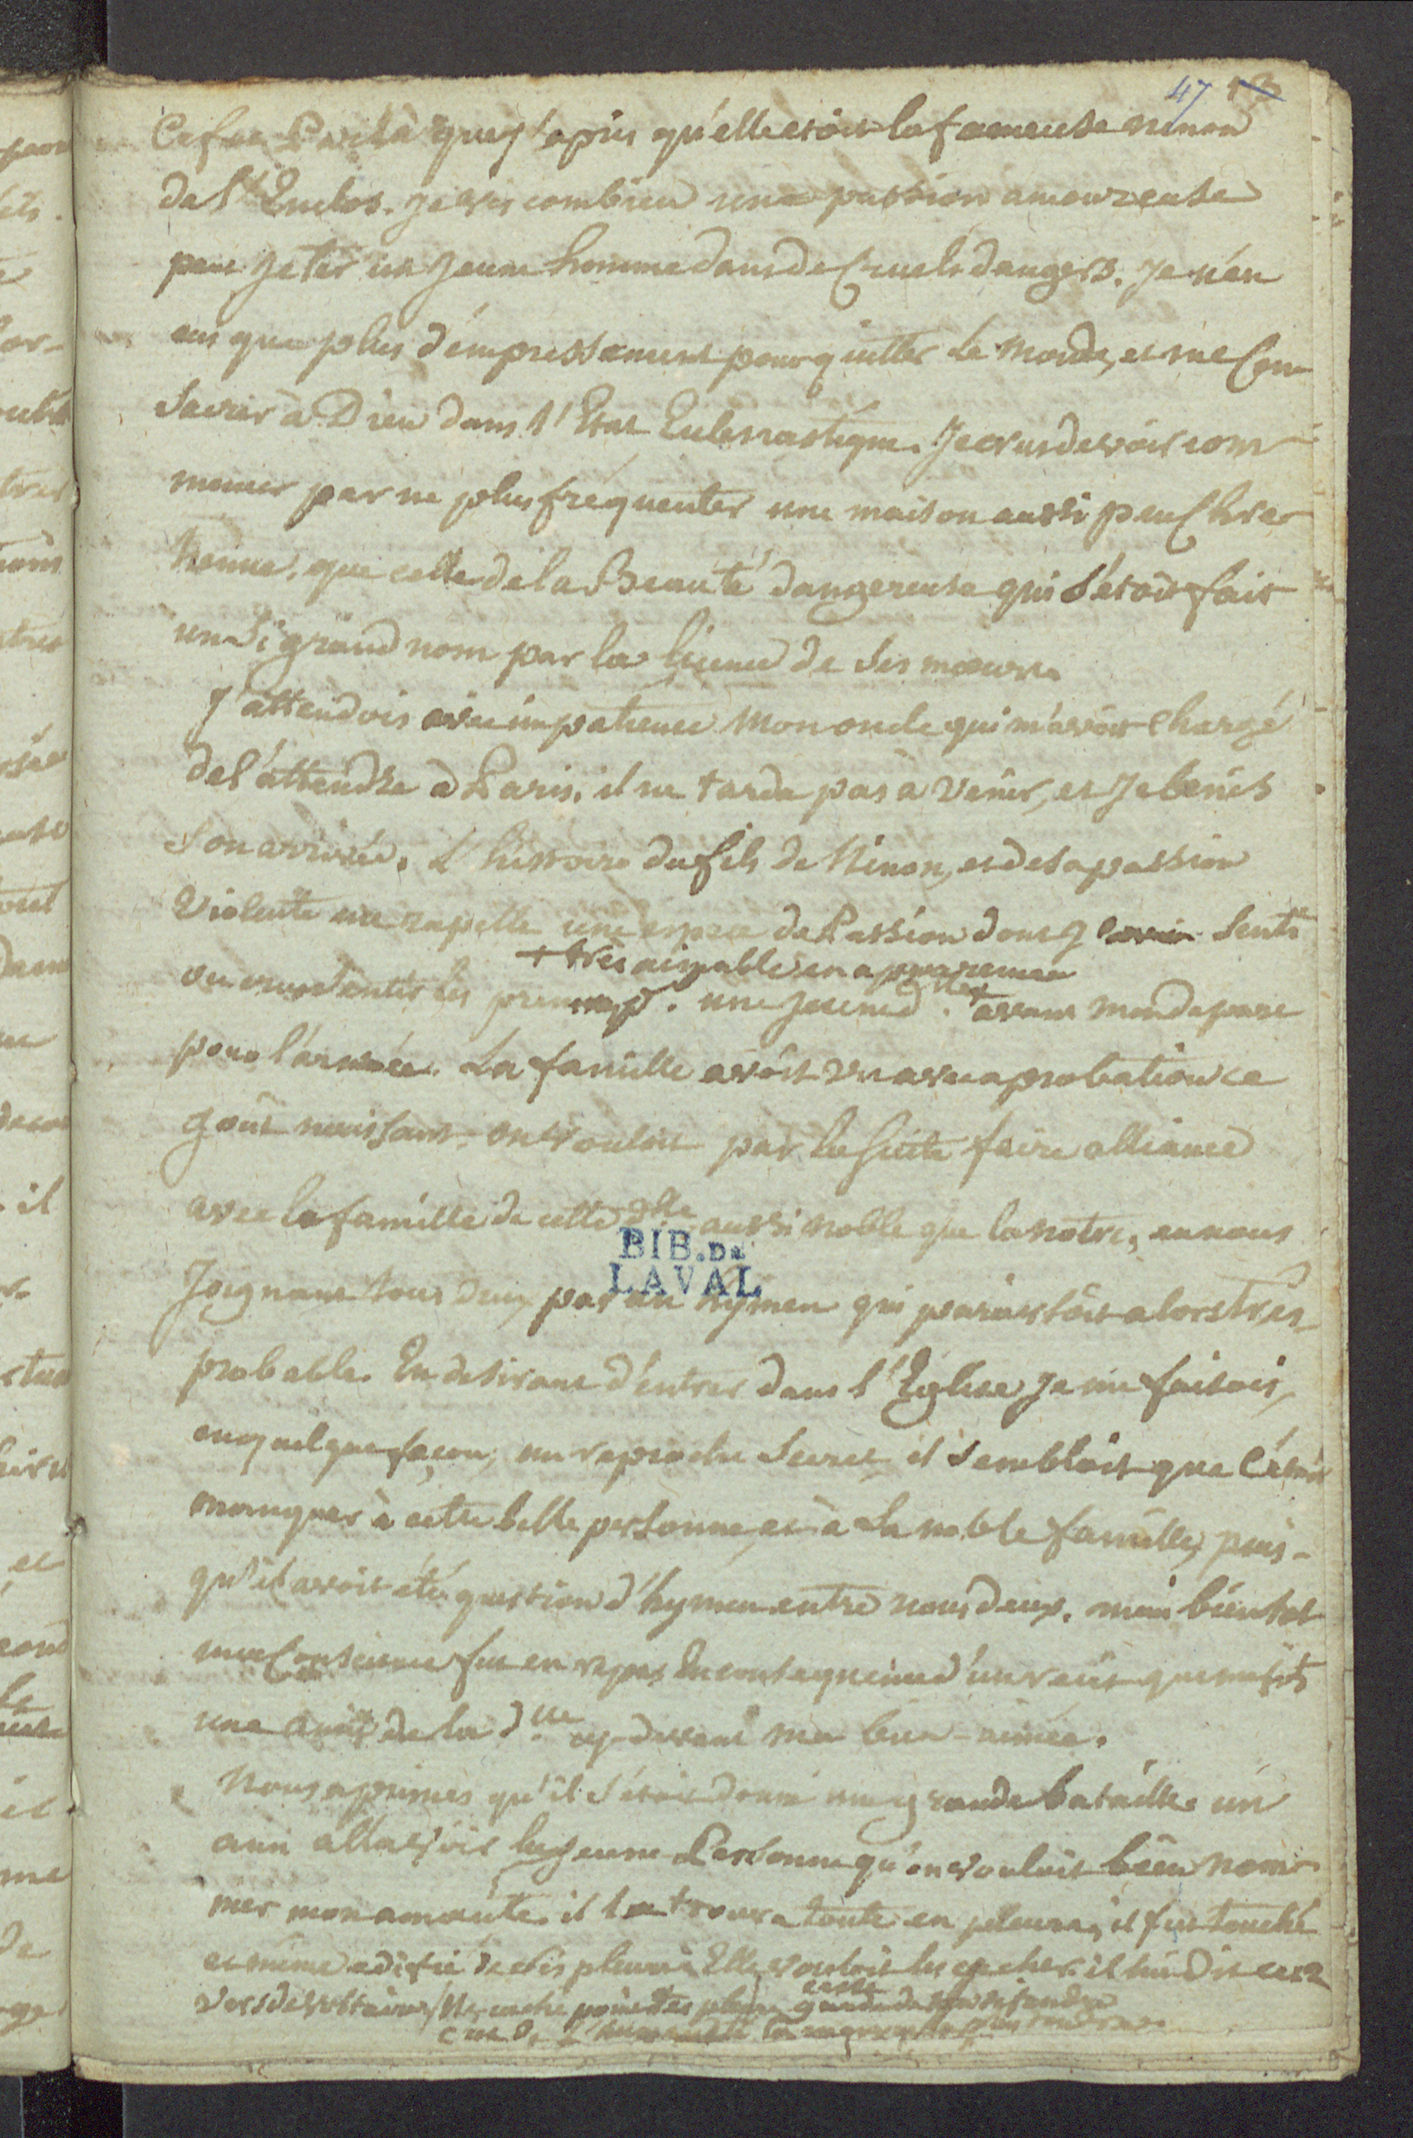 47 13
Ce fut Par là que j'apris qu'elle etoit la fameuse ninon
de l'Enclos. Je vis combien une passion amoureuse
peut jeter un Jeune homme dans de Cruels dangers. Je n'en
eus que plus d'empressement pour quitter le monde, et me Con
sacrer à Dieu dans l'Etat Eclesiastique. Je crus devoir com-
mencer par ne plus fréquenter une maison aussi peu Chre-
tienne, que celle de la Beauté dangereuse qui s'étoit fait
un si grand nom par la licence de ses mœurs.
J'attendois avec impatience mon oncle qui m'avoit chargé
de l'attendre à Paris. il ne tarda pas à venir, et je benis
son arrivée. L'histoire du fils de Ninon, et de sa passion
violente me rapelle une espece de Passion dont j'avois senti
+ très aimable en apparence
ou cru sentir les p. une jeune d.lle + avant mon depart
pour l'armée. La famille avoit vu avec aprobation ce
goût naissant. on vouloit par la suite faire alliance
avec la famille de cette d.lle aussi noble que la notre, en nous
BIB. DE
LAVAL
Joignant tous deux par un hymen qui paraissoit alors très
probable. En desirant d'entrer dans l'Eglise je me faisois,
en quelque façon, un reproche secret, il sembloit que c'étoit
manquer à cette belle personne, et à sa noble famille, puis-
qu'il avoit été question d'hymen entre nous deux. mais bientot
ma Conscience fut en repos en consequence d'un recit que me fit
une amie de la d.lle cy-devant ma bien-aimée.
Nous aprimes qu'il s'étoit donné une grande bataille. un
ami alla voir la jeune Personne qu'on vouloit bien nom-
mer mon amante. il la trouva toute en pleurs, il fut touché
et même edifié de ses pleurs. Elle vouloit les cacher. il lui dit ces 2
vers de voltaire / Ne cache point tes pleurs, cesse de t'en defendre
c'est de l'humanité la marque la plus tendre.